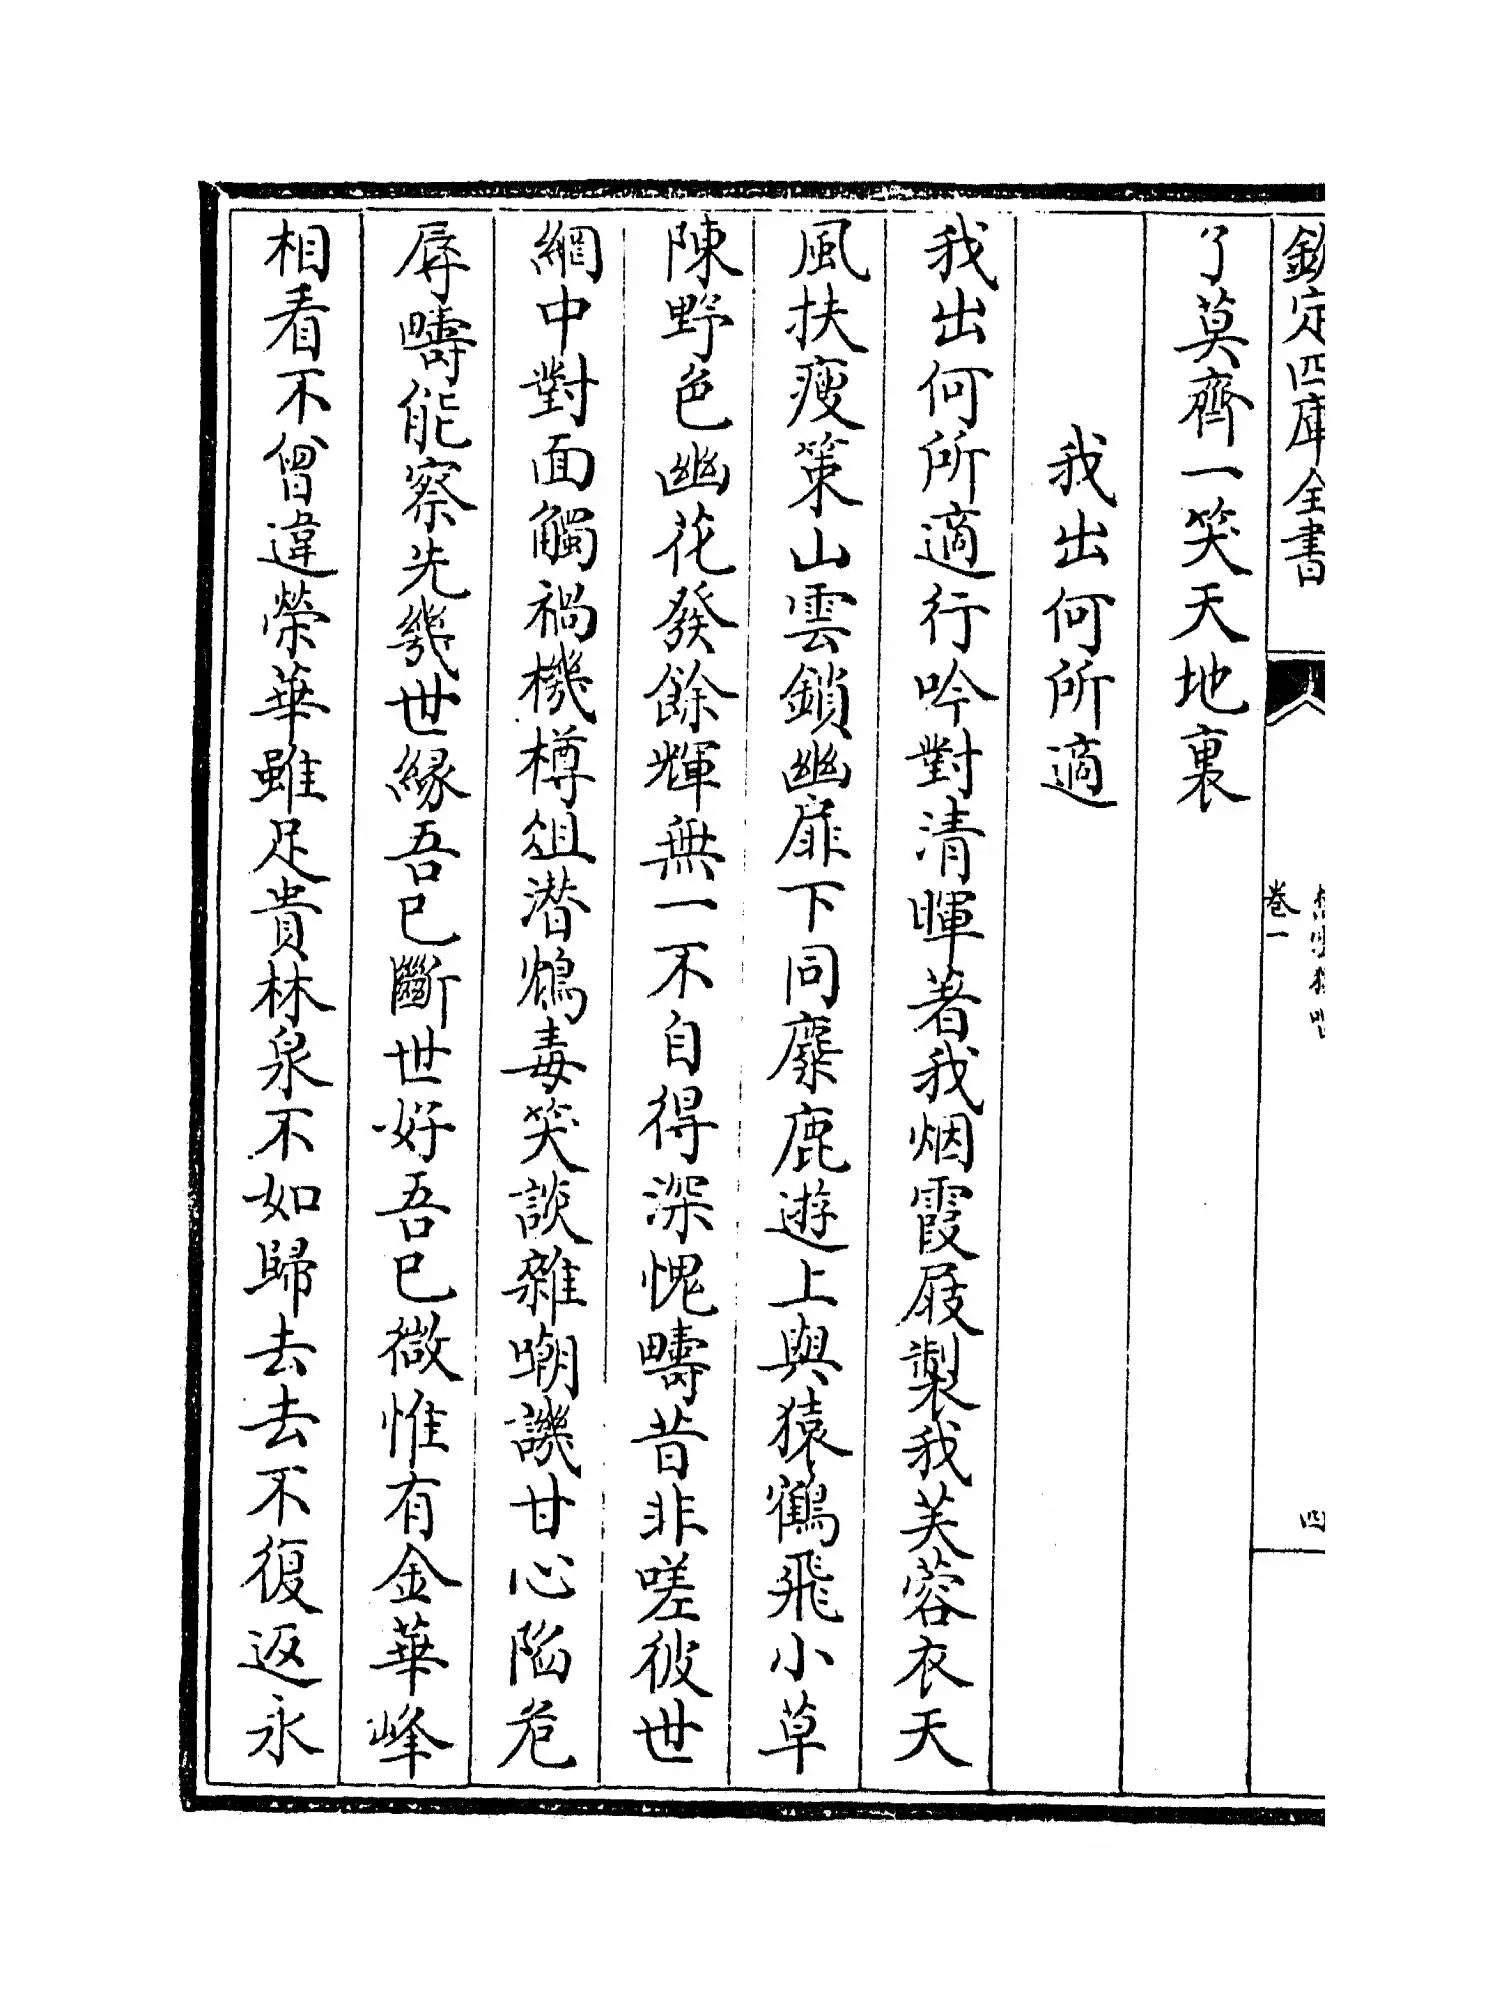 欽定四庫全書
卷一
四
了莫齊一笑天地裏
我出何所適
我出何所適行吟對清暉著我烟霞屐製我芙蓉衣天
風扶瘦策山雲鎖幽扉下同麋鹿遊上與猿鶴飛小草
陳野色幽花發餘輝無一不自得深愧疇昔非嗟彼世
網中對面觸禍機樽俎潜鴆毒笑談雜嘲譏甘心陷危
辱疇能察先幾世緣吾已斷世好吾已微惟有金華峰
相看不曾違榮華雖足貴林泉不如歸去去不復返永